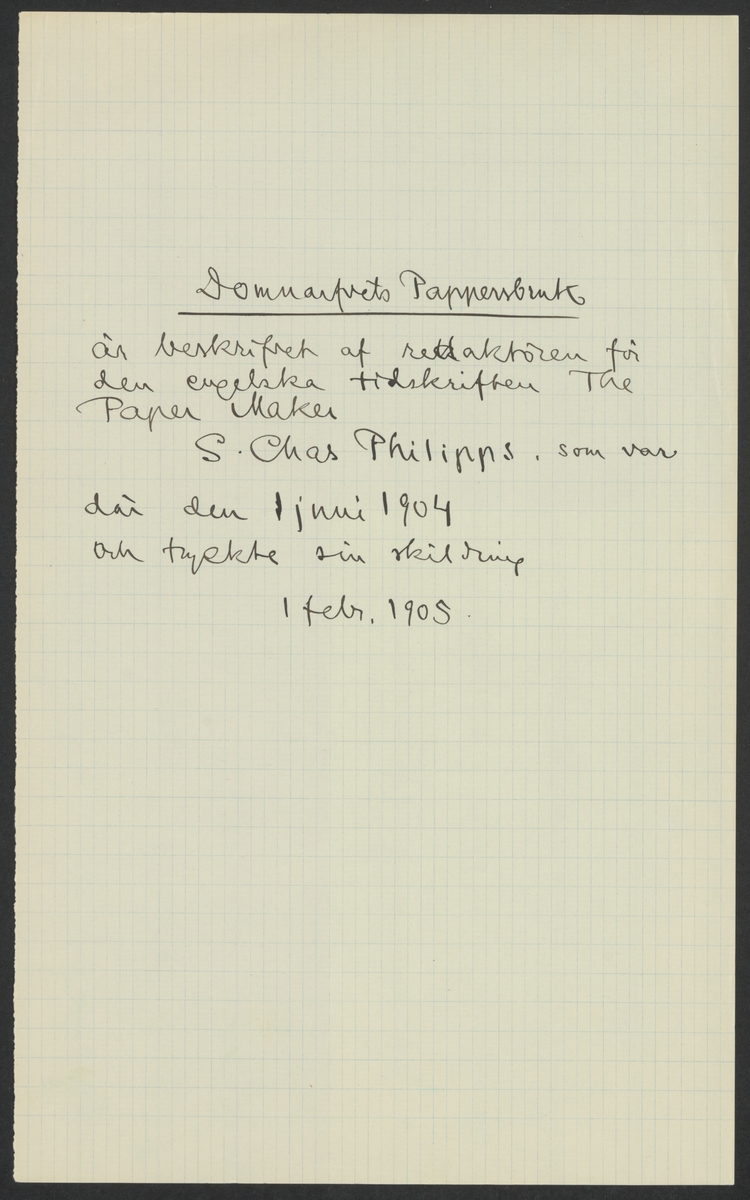 Domnarfvets Pappersbruk
är beskrifvet af redaktören för
den engelska tidskriften The
Paper Maker
S. Chas Philipps, som var
där den 1 juni 1904
och tryckte sin skildring
1 febr. 1905.